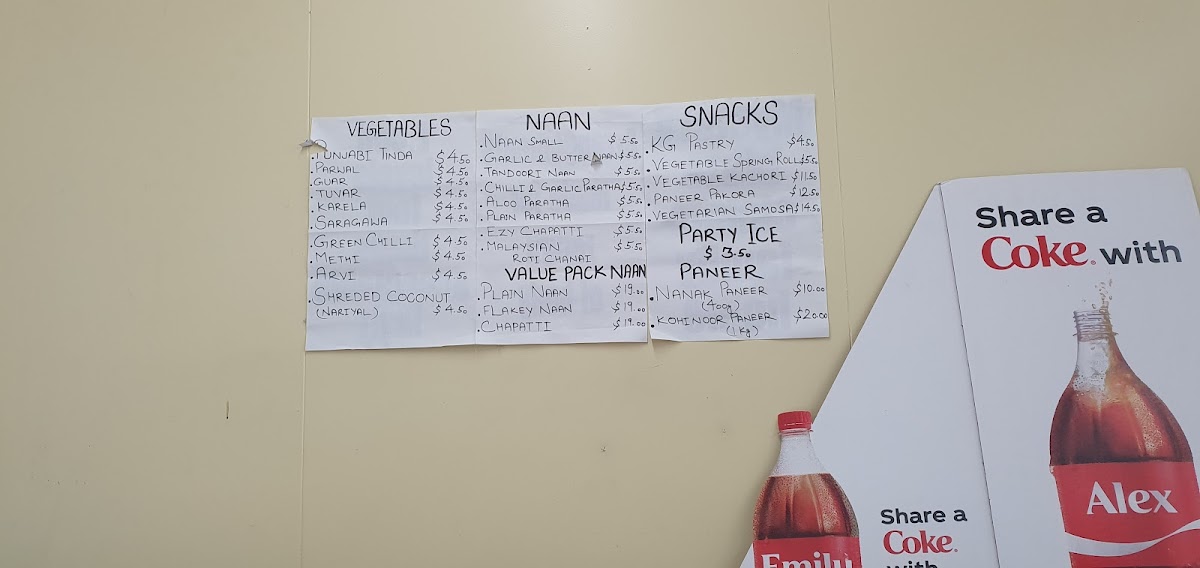 VEGETABLES
. PUNJABI TINDA $4.50
. PARWAL $4.50
. GUAR $4.50
. TUVAR $4.50
. KARELA $4.50
. SARAGAWA $4.50
. GREEN CHILLI $4.50
. METHI $4.50
. ARVI $4.50
. SHREDED COCONUT
(NARIYAL) $4.50
NAAN
. NAAN SMALL $5.50
. GARLIC & BUTTER NAAN $5.50
. TANDOORI NAAN $5.50
. CHILLI & GARLIC PARATHA $5.50
. ALOO PARATHA $5.50
. PLAIN PARATHA $5.50
. EZY CHAPATTI $5.50
. MALAYSIAN $5.50
ROTI CHANAI
VALUE PACK NAAN
. PLAIN NAAN $19.00
. FLAKEY NAAN $19.00
. CHAPATTI $19.00
SNACKS
. KG PASTRY $4.50
. VEGETABLE SPRING ROLL $5.50
. VEGETABLE KACHORI $11.50
. PANEER PAKORA $12.50
. VEGETARIAN SAMOSA $14.50
PARTY ICE
$3.50
PANEER
. NANAK PANEER $10.00
(400g)
. KOHINOOR PANEER $20.00
(1 Kg)
Share a
Coke. with
Alex
Emily
Share a
Coke.
with